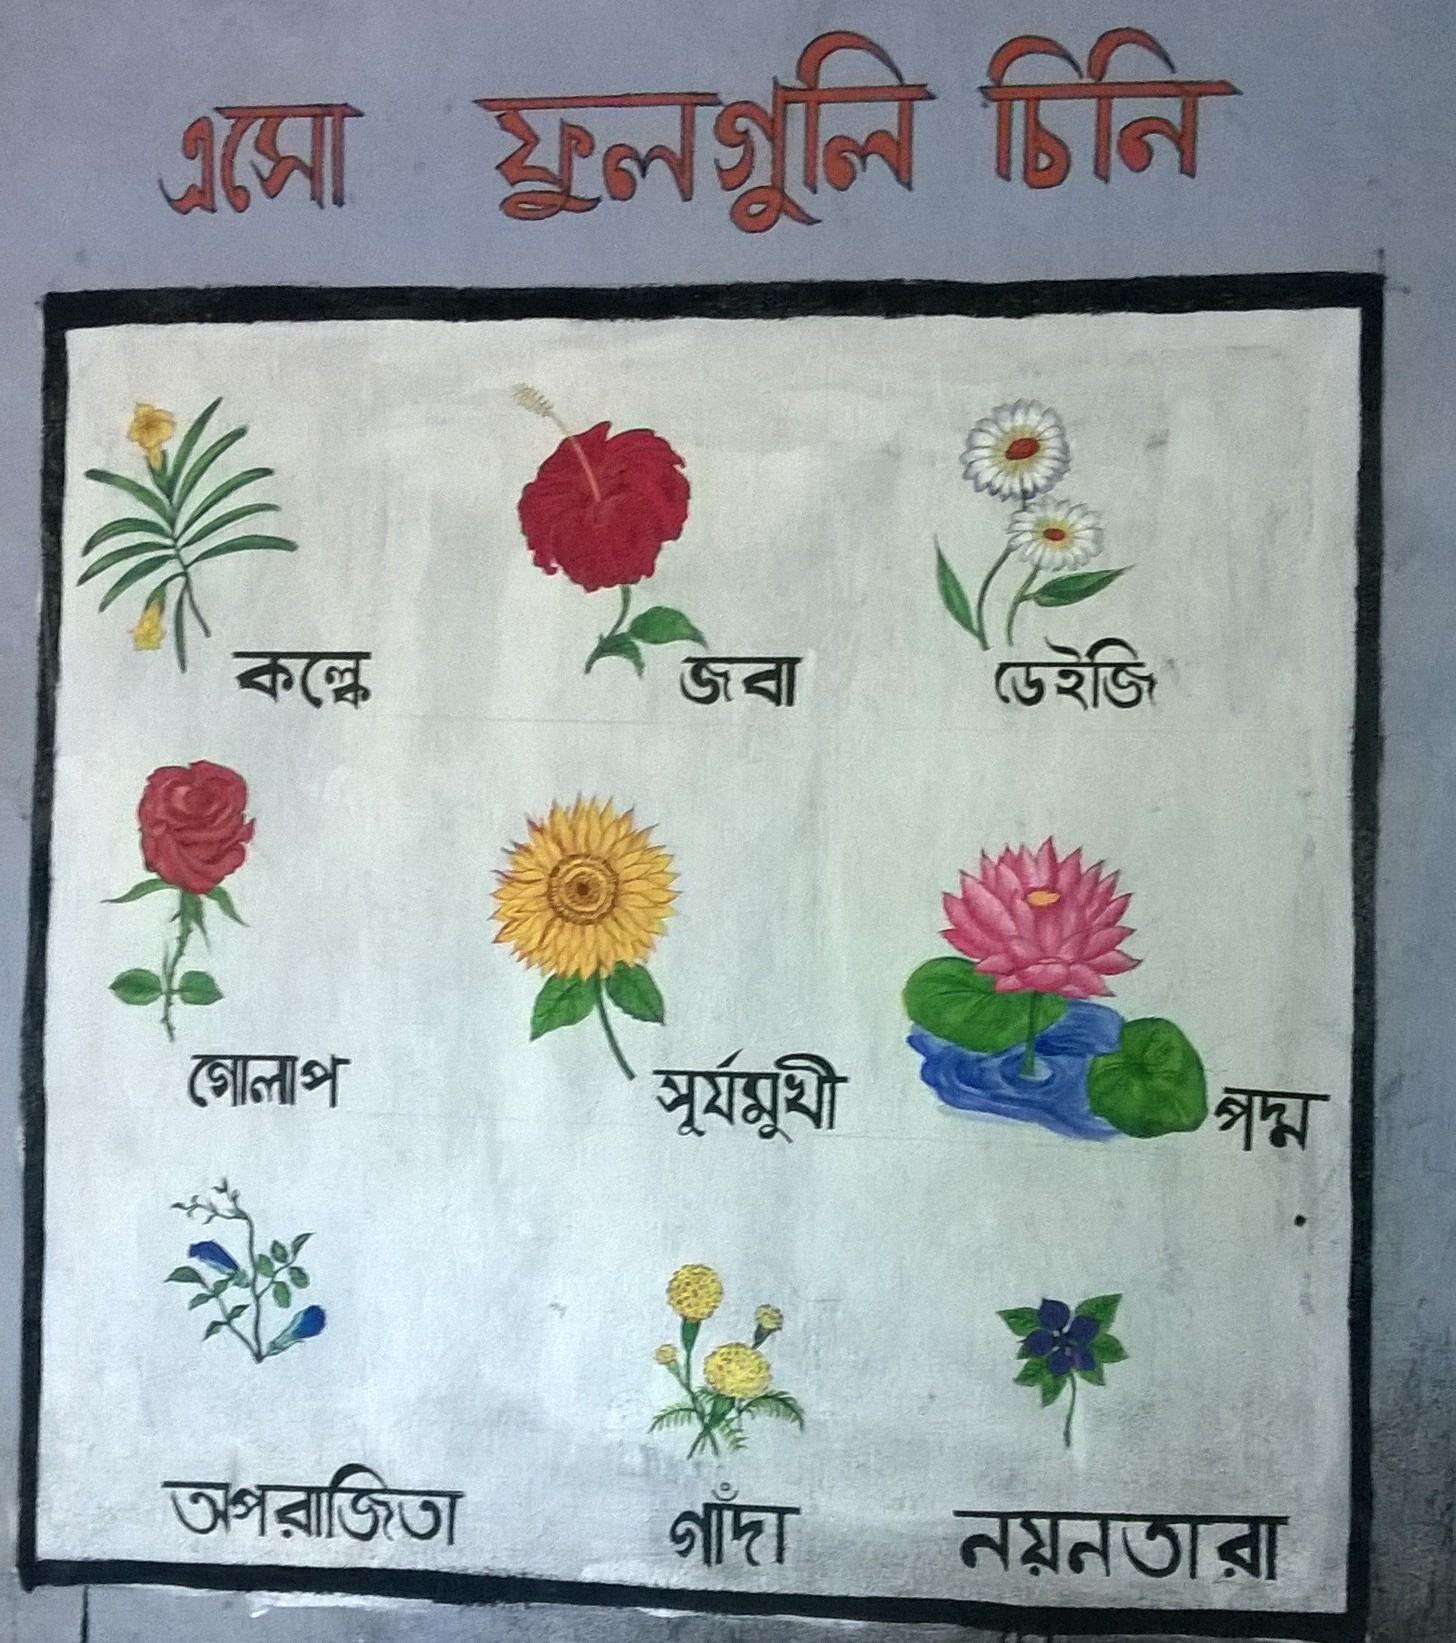 এসো ফুলগুলি চিনি
কল্কে জবা ডেইজি
গোলাপ সূর্যমুখী পদ্ম
অপরাজিতা গাঁদা নয়নতারা